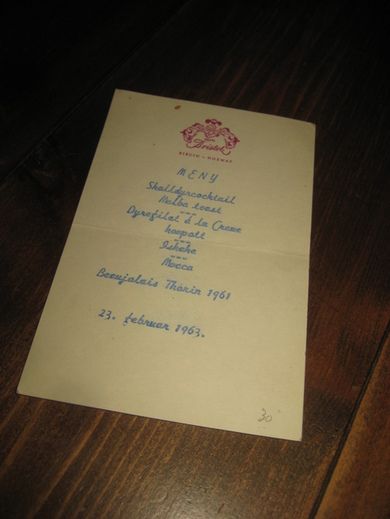 Bristol
BERGEN - NORWAY
MENY
Skalldyrcocktail
Melba toast
---
Dyrefilet à la Creme
---
Iskake
---
Mocca
Beaujolais Thorin 1961
23. februar 1963.
30